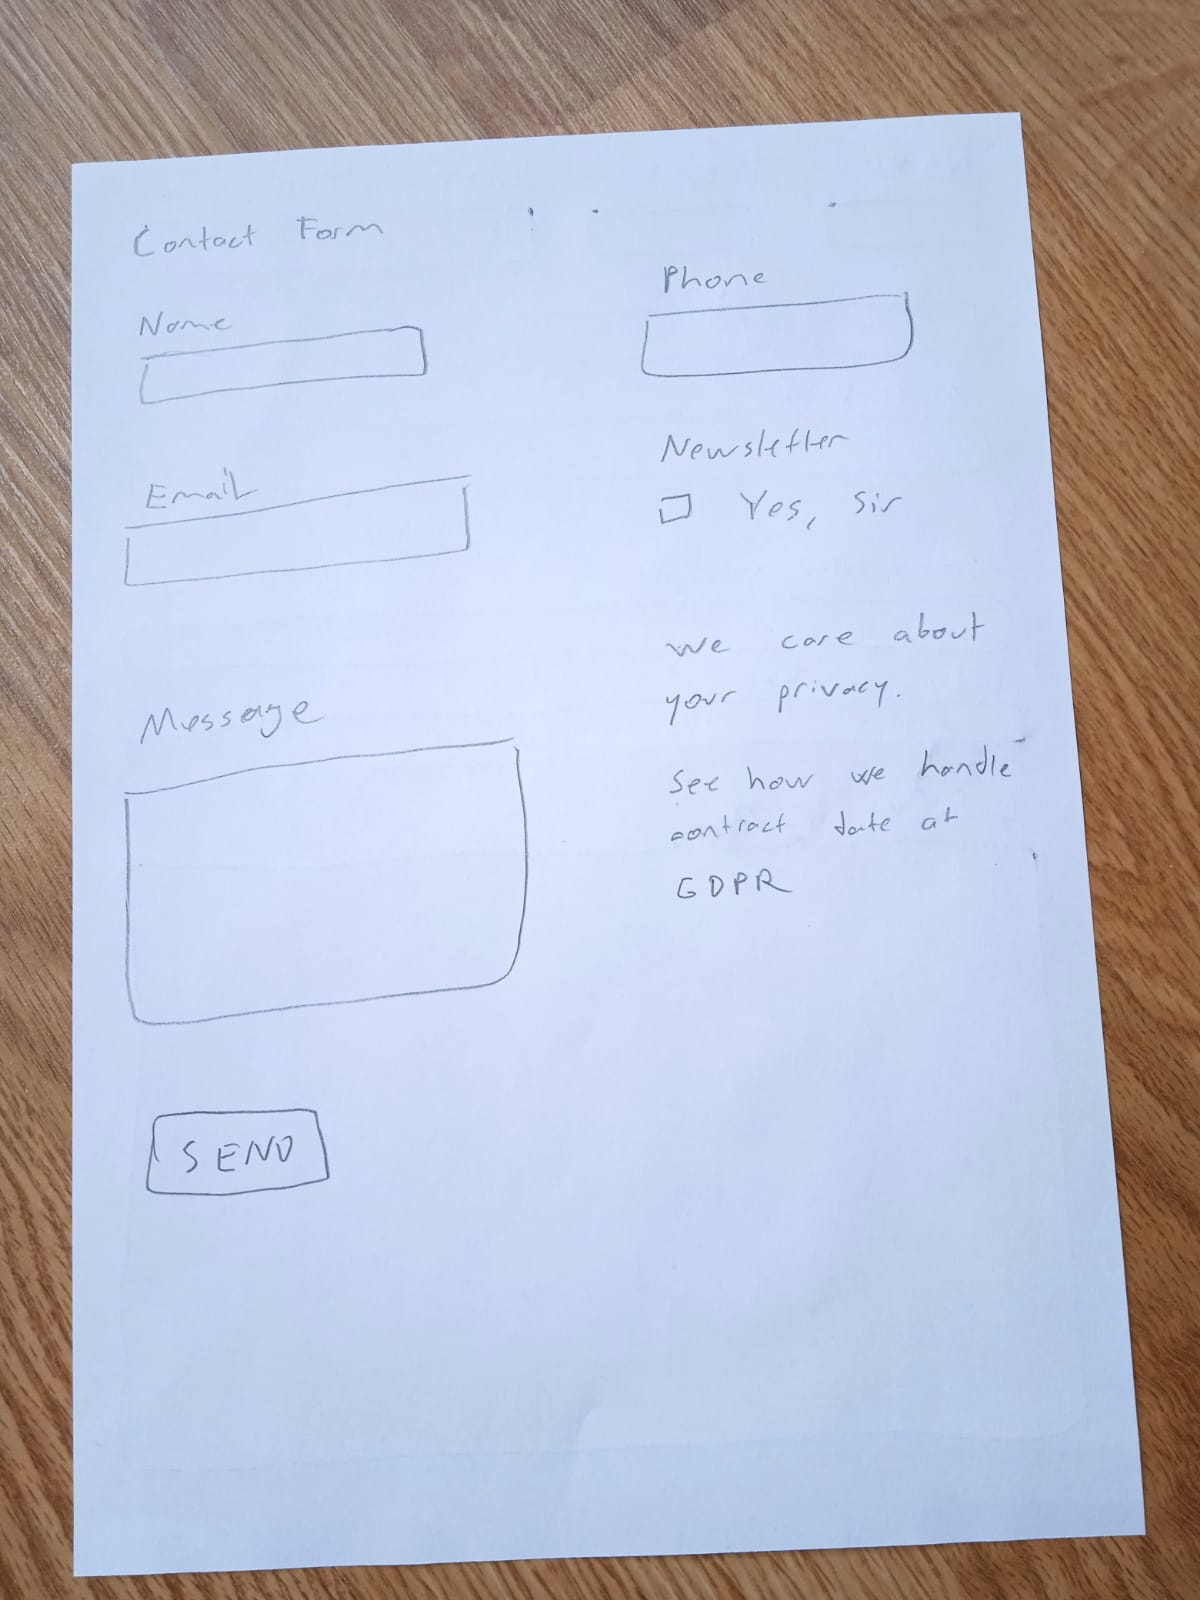 Contact Form
Name
Email
Message
SEND
Phone
Newsletter
Yes, Sir
We care about
your privacy.
See how we handle
contract date at
GDPR